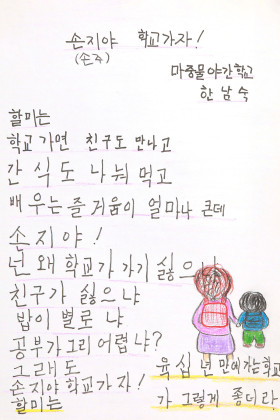 손지야 학교가자!
(손주)
마중물야간학교
한남숙
할미는
학교 가면 친구도 만나고
간식도 나눠 먹고
배우는 즐거움이 얼마나 큰데
손지야!
넌 왜 학교가 가기 싫으냐
친구가 싫으냐
밥이 별로냐
공부가 그리 어렵냐?
그래도
손지야 학교가자!
할미는
육십년 만에 가는 학교
가 그렇게 좋더라